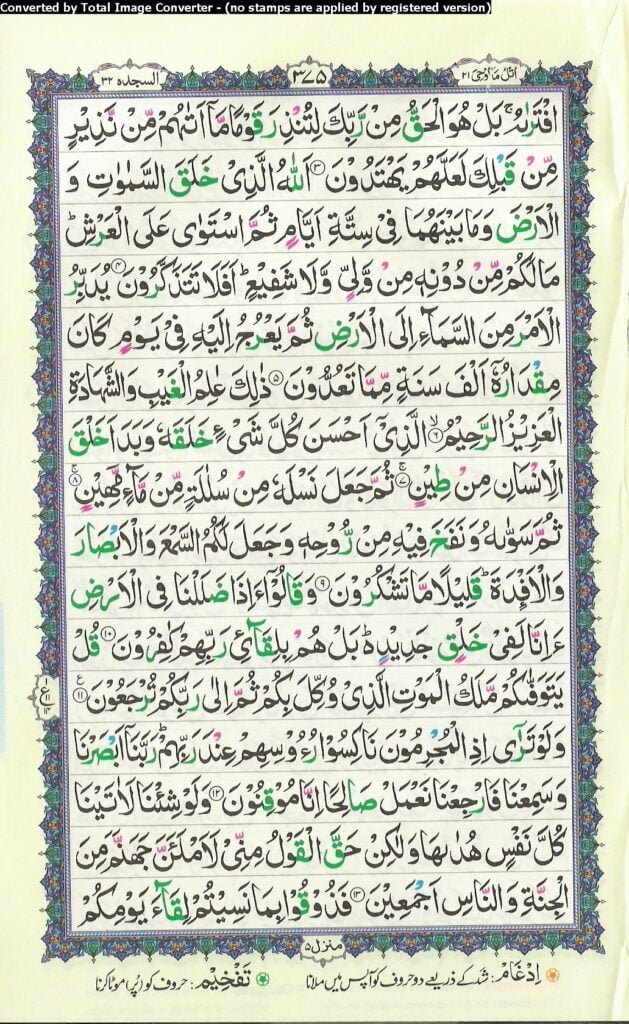 Converted by Total Image Converter - (no stamps are applied by registered version)
اتل ما اوحی ۲۱
۳۷۵
السجدہ ۳۲
افْتَرٰىهُ ۚ بَلْ هُوَ الْحَقُّ مِنْ رَّبِّكَ لِتُنْذِرَ قَوْمًا مَّاۤ اَتٰىهُمْ مِّنْ نَّذِیْرٍ
مِّنْ قَبْلِكَ لَعَلَّهُمْ یَهْتَدُوْنَ ﴿۳﴾ اَللّٰهُ الَّذِیْ خَلَقَ السَّمٰوٰتِ وَ
الْاَرْضَ وَمَا بَیْنَهُمَا فِیْ سِتَّةِ اَیَّامٍ ثُمَّ اسْتَوٰی عَلَی الْعَرْشِ ؕ
مَا لَكُمْ مِّنْ دُوْنِهٖ مِنْ وَّلِیٍّ وَّلَا شَفِیْعٍ ؕ اَفَلَا تَتَذَكَّرُوْنَ ﴿۴﴾ یُدَبِّرُ
الْاَمْرَ مِنَ السَّمَآءِ اِلَی الْاَرْضِ ثُمَّ یَعْرُجُ اِلَیْهِ فِیْ یَوْمٍ كَانَ
مِقْدَارُهٗۤ اَلْفَ سَنَةٍ مِّمَّا تَعُدُّوْنَ ﴿۵﴾ ذٰلِكَ عٰلِمُ الْغَیْبِ وَالشَّهَادَةِ
الْعَزِیْزُ الرَّحِیْمُ ﴿۶﴾ ۙ الَّذِیْۤ اَحْسَنَ كُلَّ شَیْءٍ خَلَقَهٗ وَبَدَاَ خَلْقَ
الْاِنْسَانِ مِنْ طِیْنٍ ﴿۷﴾ ۚ ثُمَّ جَعَلَ نَسْلَهٗ مِنْ سُلٰلَةٍ مِّنْ مَّآءٍ مَّهِیْنٍ ﴿۸﴾ ۚ
ثُمَّ سَوّٰىهُ وَنَفَخَ فِیْهِ مِنْ رُّوْحِهٖ وَجَعَلَ لَكُمُ السَّمْعَ وَالْاَبْصَارَ
وَالْاَفْـِٕدَةَ ؕ قَلِیْلًا مَّا تَشْكُرُوْنَ ﴿۹﴾ وَقَالُوْۤا ءَاِذَا ضَلَلْنَا فِی الْاَرْضِ
ءَاِنَّا لَفِیْ خَلْقٍ جَدِیْدٍ ؕ۬ بَلْ هُمْ بِلِقَآئِ رَبِّهِمْ كٰفِرُوْنَ ﴿۱۰﴾ قُلْ
یَتَوَفّٰىكُمْ مَّلَكُ الْمَوْتِ الَّذِیْ وُكِّلَ بِكُمْ ثُمَّ اِلٰی رَبِّكُمْ تُرْجَعُوْنَ ﴿۱۱﴾ ع
وَلَوْ تَرٰۤی اِذِ الْمُجْرِمُوْنَ نَاكِسُوْا رُءُوْسِهِمْ عِنْدَ رَبِّهِمْ ؕ رَبَّنَاۤ اَبْصَرْنَا
وَسَمِعْنَا فَارْجِعْنَا نَعْمَلْ صَالِحًا اِنَّا مُوْقِنُوْنَ ﴿۱۲﴾ وَلَوْ شِئْنَا لَاٰتَیْنَا
كُلَّ نَفْسٍ هُدٰىهَا وَلٰكِنْ حَقَّ الْقَوْلُ مِنِّیْ لَاَمْلَـَٔنَّ جَهَنَّمَ مِنَ
الْجِنَّةِ وَالنَّاسِ اَجْمَعِیْنَ ﴿۱۳﴾ فَذُوْقُوْا بِمَا نَسِیْتُمْ لِقَآءَ یَوْمِكُمْ
منزل ۵
اِدْغَام: شد کے ذریعے دو حروف کو آپس میں ملانا تَفْخِیْم: حروف کو (پُر) موٹا کرنا